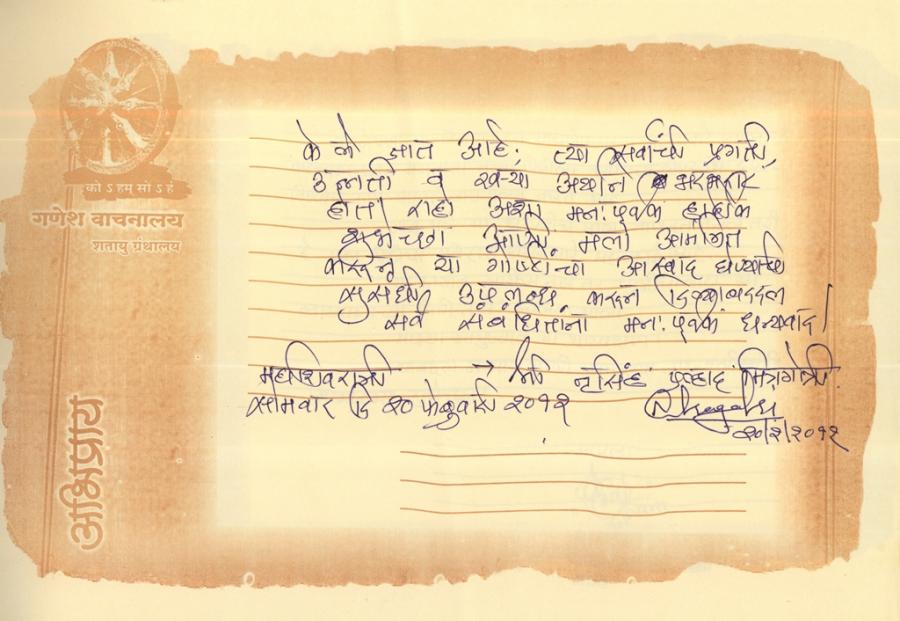 को ऽ हम् सो ऽ हं
गणेश वाचनालय
शतायु ग्रंथालय
अभिप्राय
केले जात आहे; त्या सर्वांची प्रगती,
उन्नती व खऱ्या अर्थाने भरभराट
होत राहो अशा मनःपूर्वक हार्दिक
शुभेच्छा आणि मला आमंत्रित
करून या गोष्टींचा आस्वाद घेण्याची
सुसंधी उपलब्ध करून दिल्याबद्दल
सर्व संबंधितांना मनःपूर्वक धन्यवाद।
महाशिवरात्री → श्री नृसिंह प्रल्हाद मित्रगोत्री.
सोमवार दि २० फेब्रुवारी २०१२
२०/२/२०१२